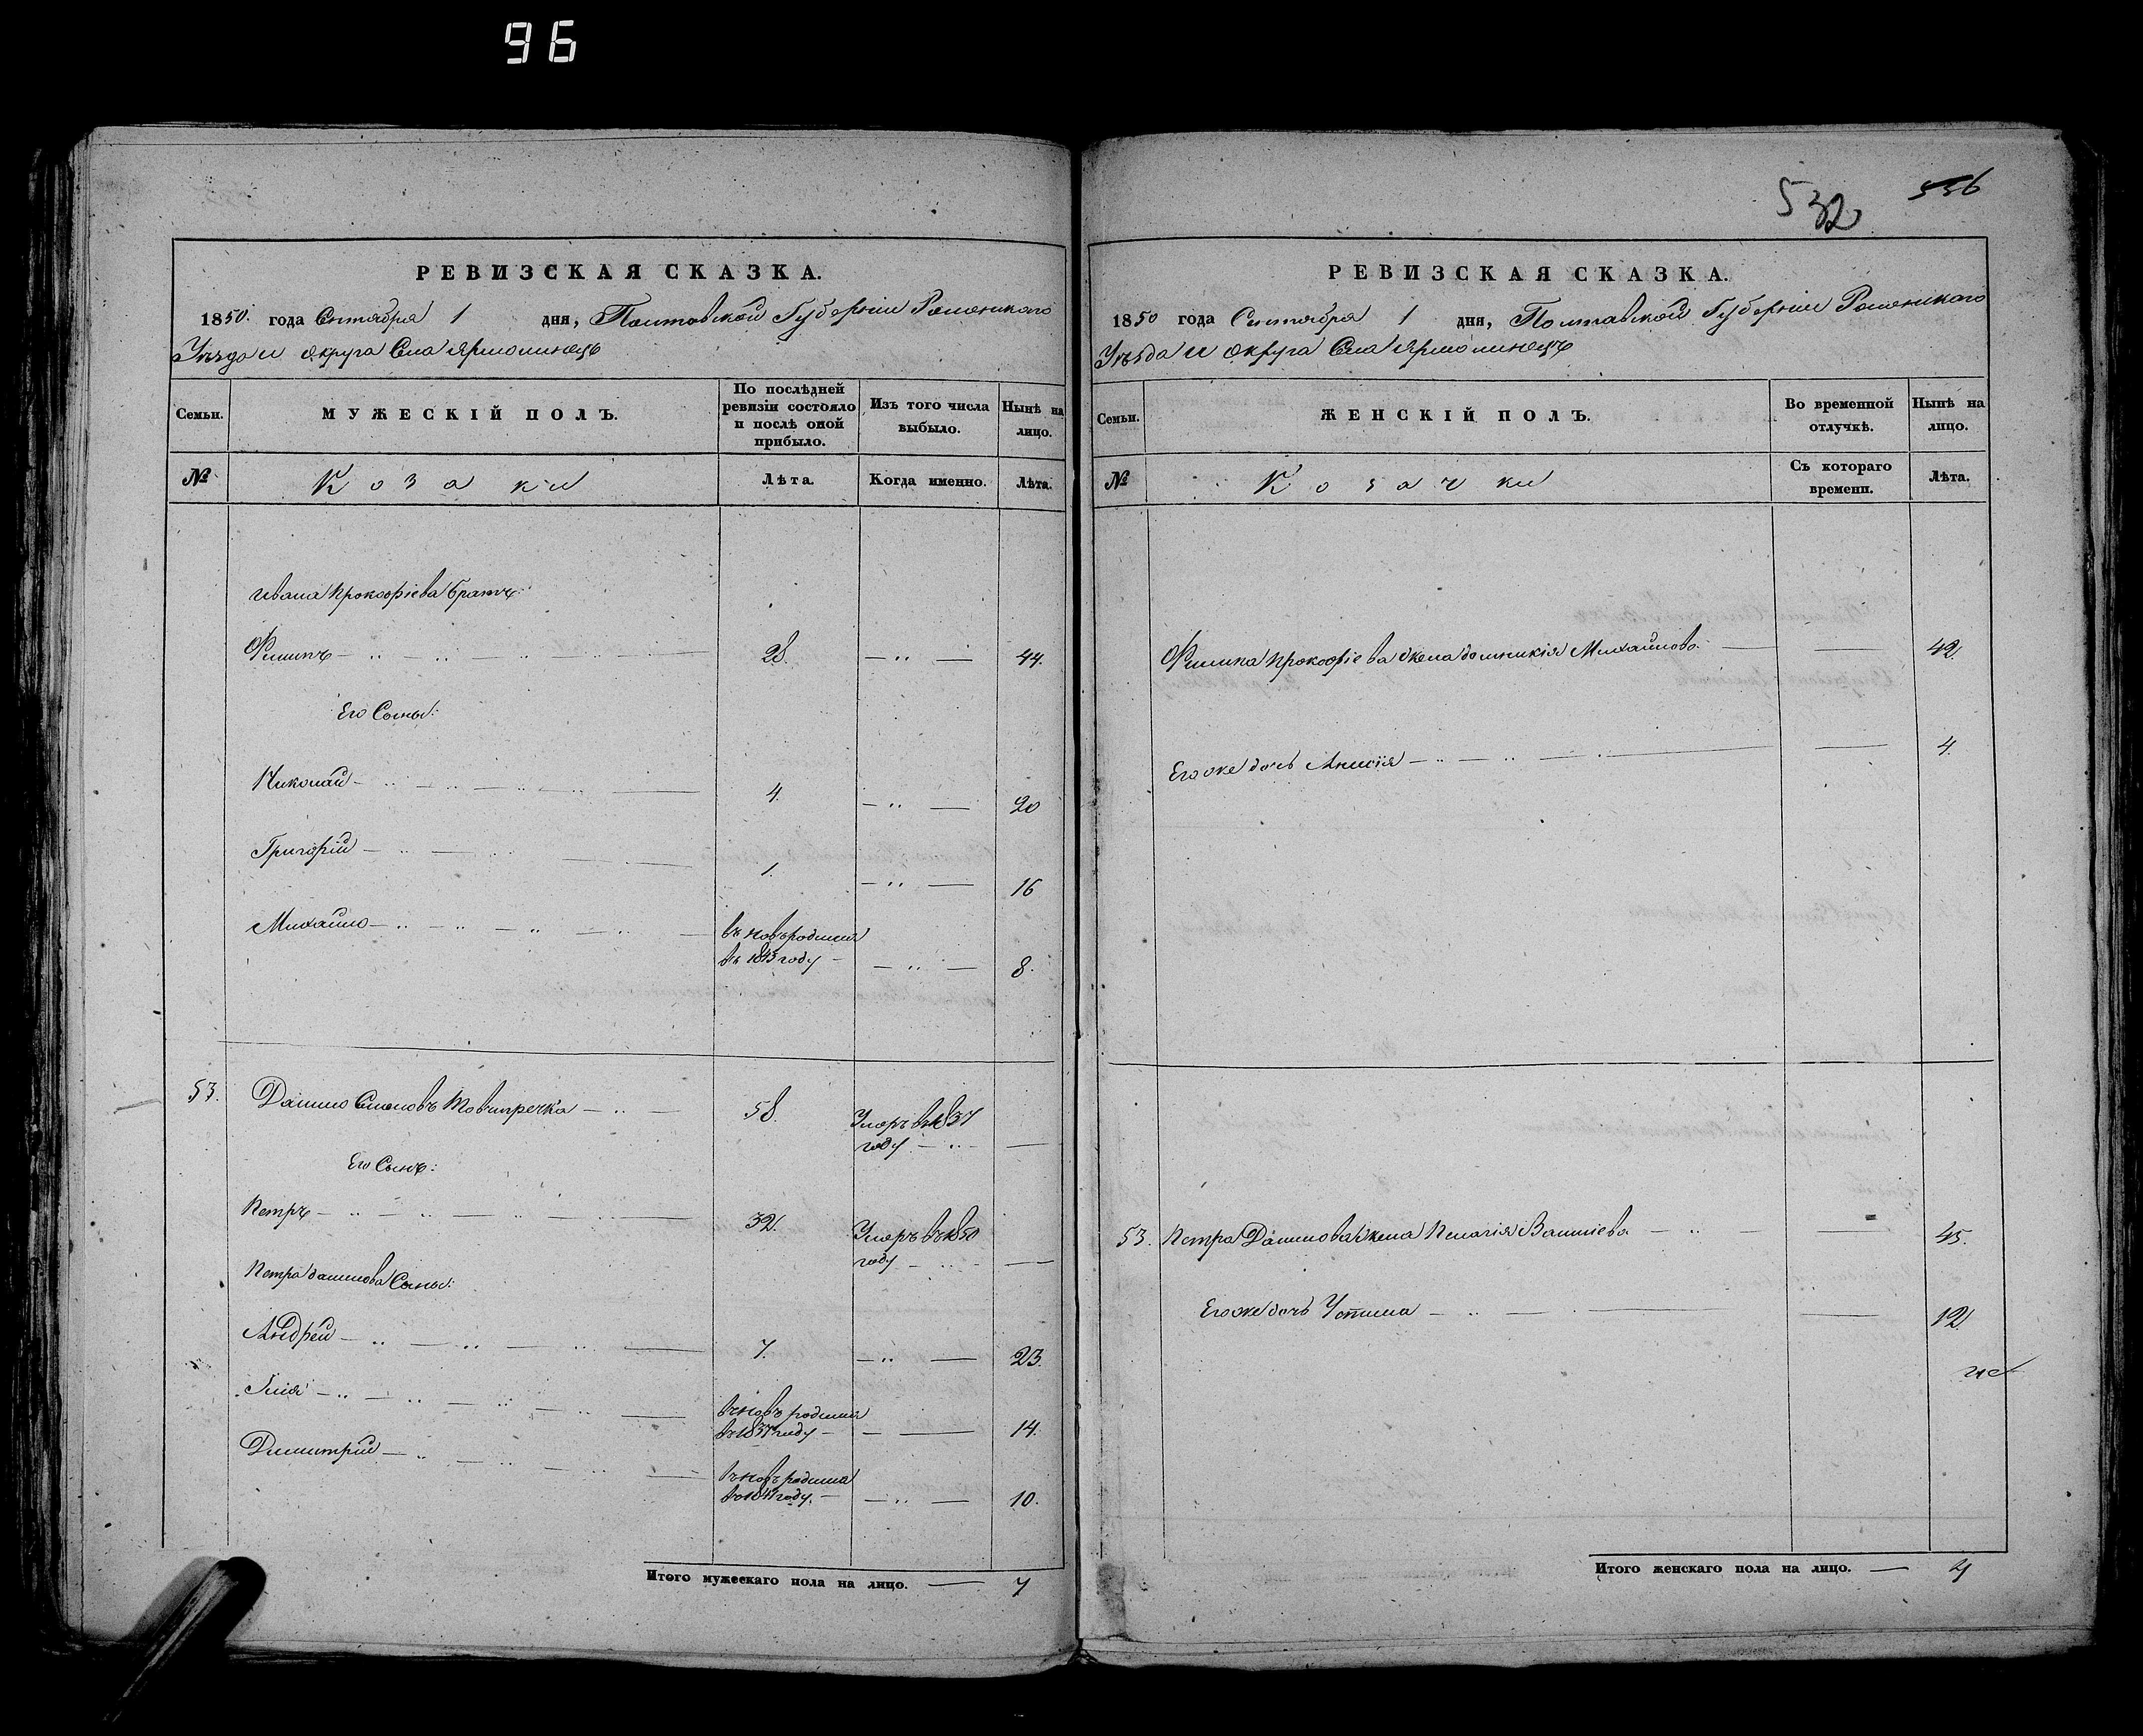 96
РЕВИЗСКАЯ СКАЗКА.
1850. года Сентября 1 дня, Полтавской Губерніи Роменскаго
Уѣзда и округа Села Ярмолинецъ
Семьи.
МУЖЕСКІЙ ПОЛЪ.
По послѣдней ревизіи состояло и послѣ оной прибыло.
Изъ того числа выбыло.
Нынѣ на лицо.
№
Козаки
Лѣта.
Когда именно.
Лѣта.
Ивана Прокофіева братъ:
Филипъ 28. 44.
Его Сыны:
Николай 4. 20
Григорій 1. 16
Михайло вновь родился
въ 1843 году 8.
53. Данило Семеновъ Товчигречка 58. Умеръ въ 1837
году
Его Сынъ:
Петръ 32. Умеръ въ 1850
году
Петра Данилова Сыны:
Андрей 7. 23.
Илія вновь родился
въ 1837 году 14.
Димитрій вновь родился
въ 1841 году. 10.
Итого мужескаго пола на лицо. 7
532 536
РЕВИЗСКАЯ СКАЗКА.
1850 года Сентября 1 дня, Полтавской Губерніи Роменскаго
Уѣзда и округа Села Ярмолинецъ
Семьи.
ЖЕНСКІЙ ПОЛЪ.
Во временной отлучкѣ.
Нынѣ на лицо.
№
Козачки
Съ котораго времени.
Лѣта.
Филипа Прокофіева жена Домникія Михайлова 42.
Его же дочь Анисія 4.
53. Петра Данилова жена Пелагія Василіева 45.
Его же дочь Устина 12.
Итого женскаго пола на лицо. 4